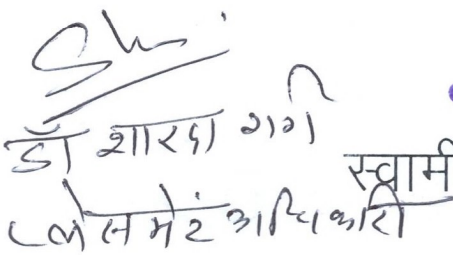 डॉ शारदा गर्ग
स्वाम
प्लेसमेंट अधिकारी